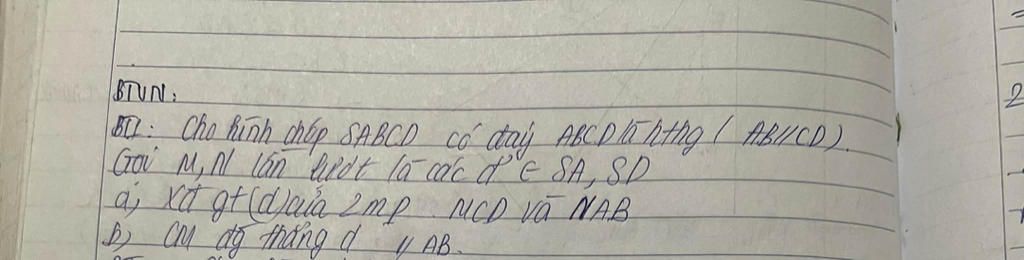 BTVN:
BT1: Cho hình chóp SABCD có đáy ABCD là hthg (AB//CD).
Gọi M, N lần lượt là các đ' ∈ SA, SD
a, Xđ gt (d) của 2 mp MCD và NAB
b) CM đg thẳng d // AB.
2